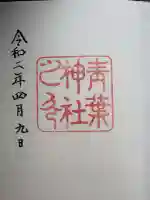 青葉
神社
之印
令和二年四月九日